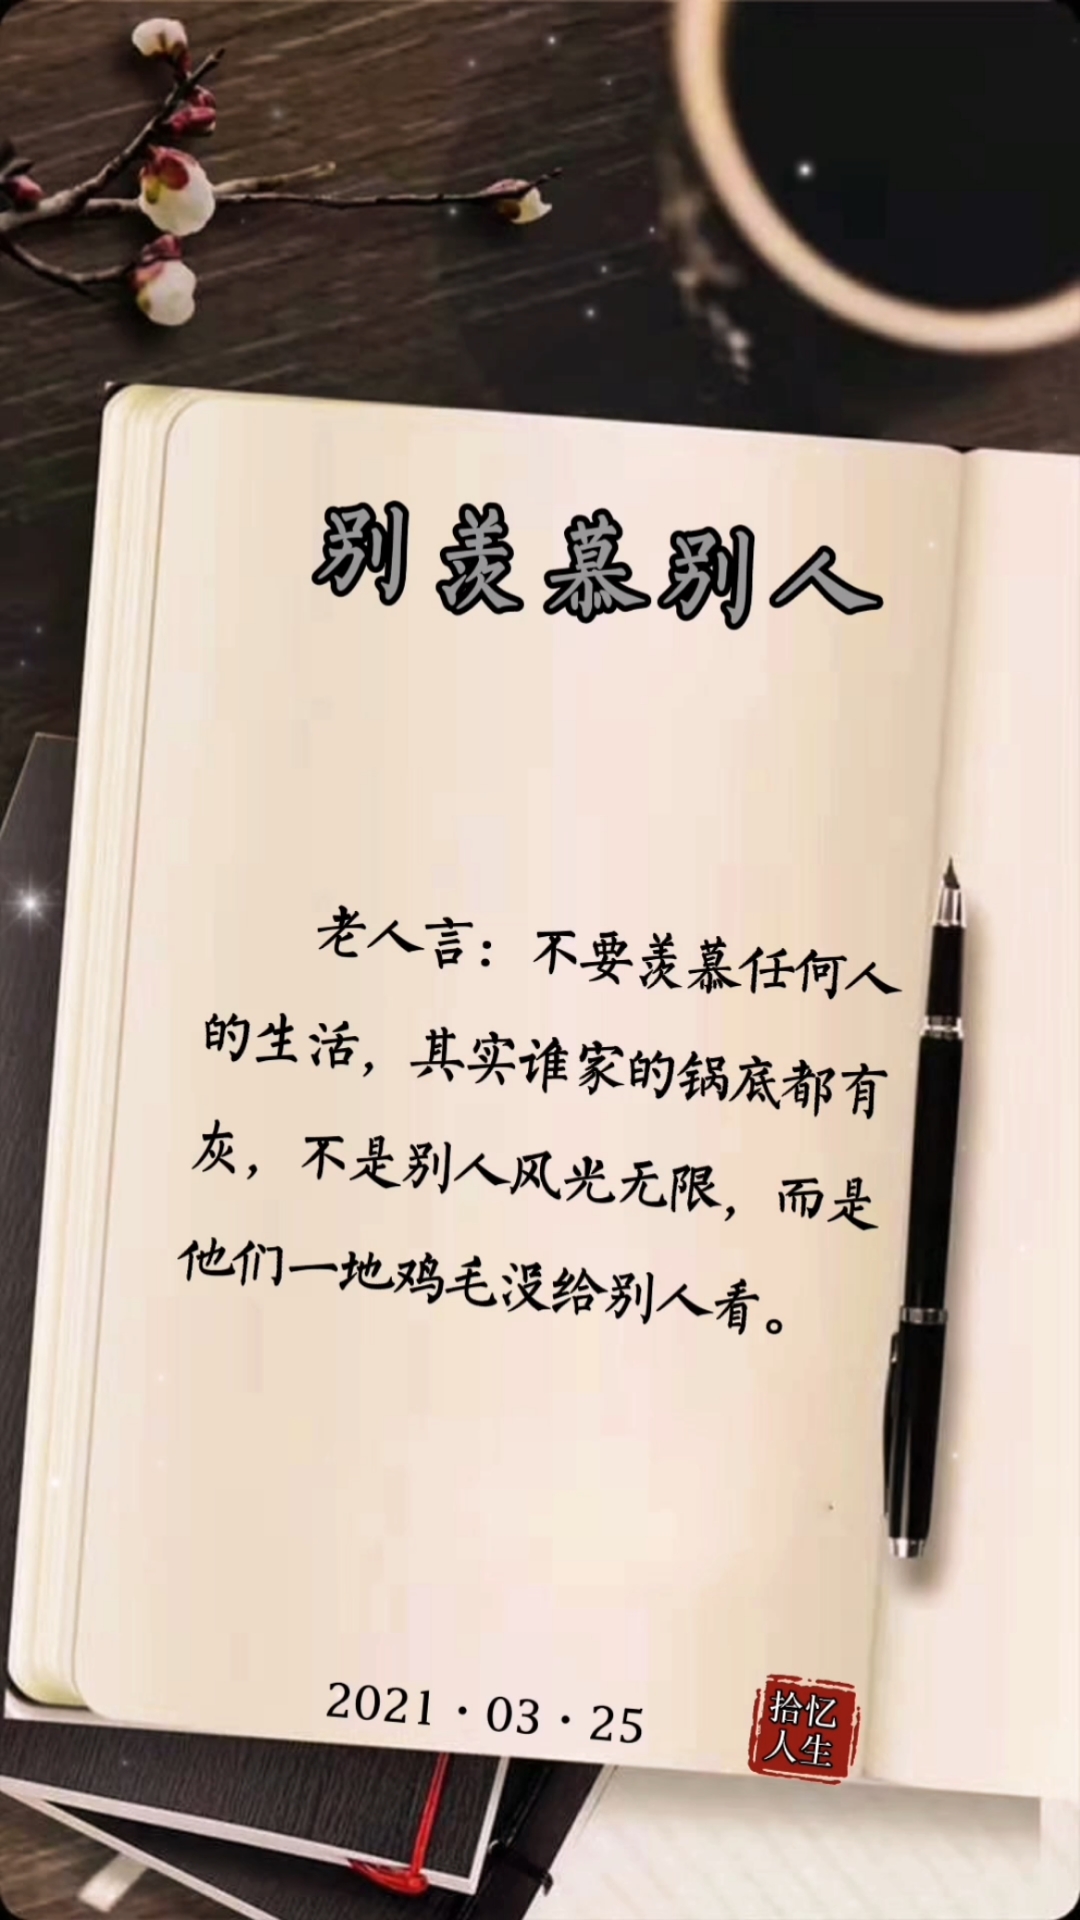 别羡慕别人
老人言：不要羡慕任何人
的生活，其实谁家的锅底都有
灰，不是别人风光无限，而是
他们一地鸡毛没给别人看。
2021·03·25
拾忆
人生